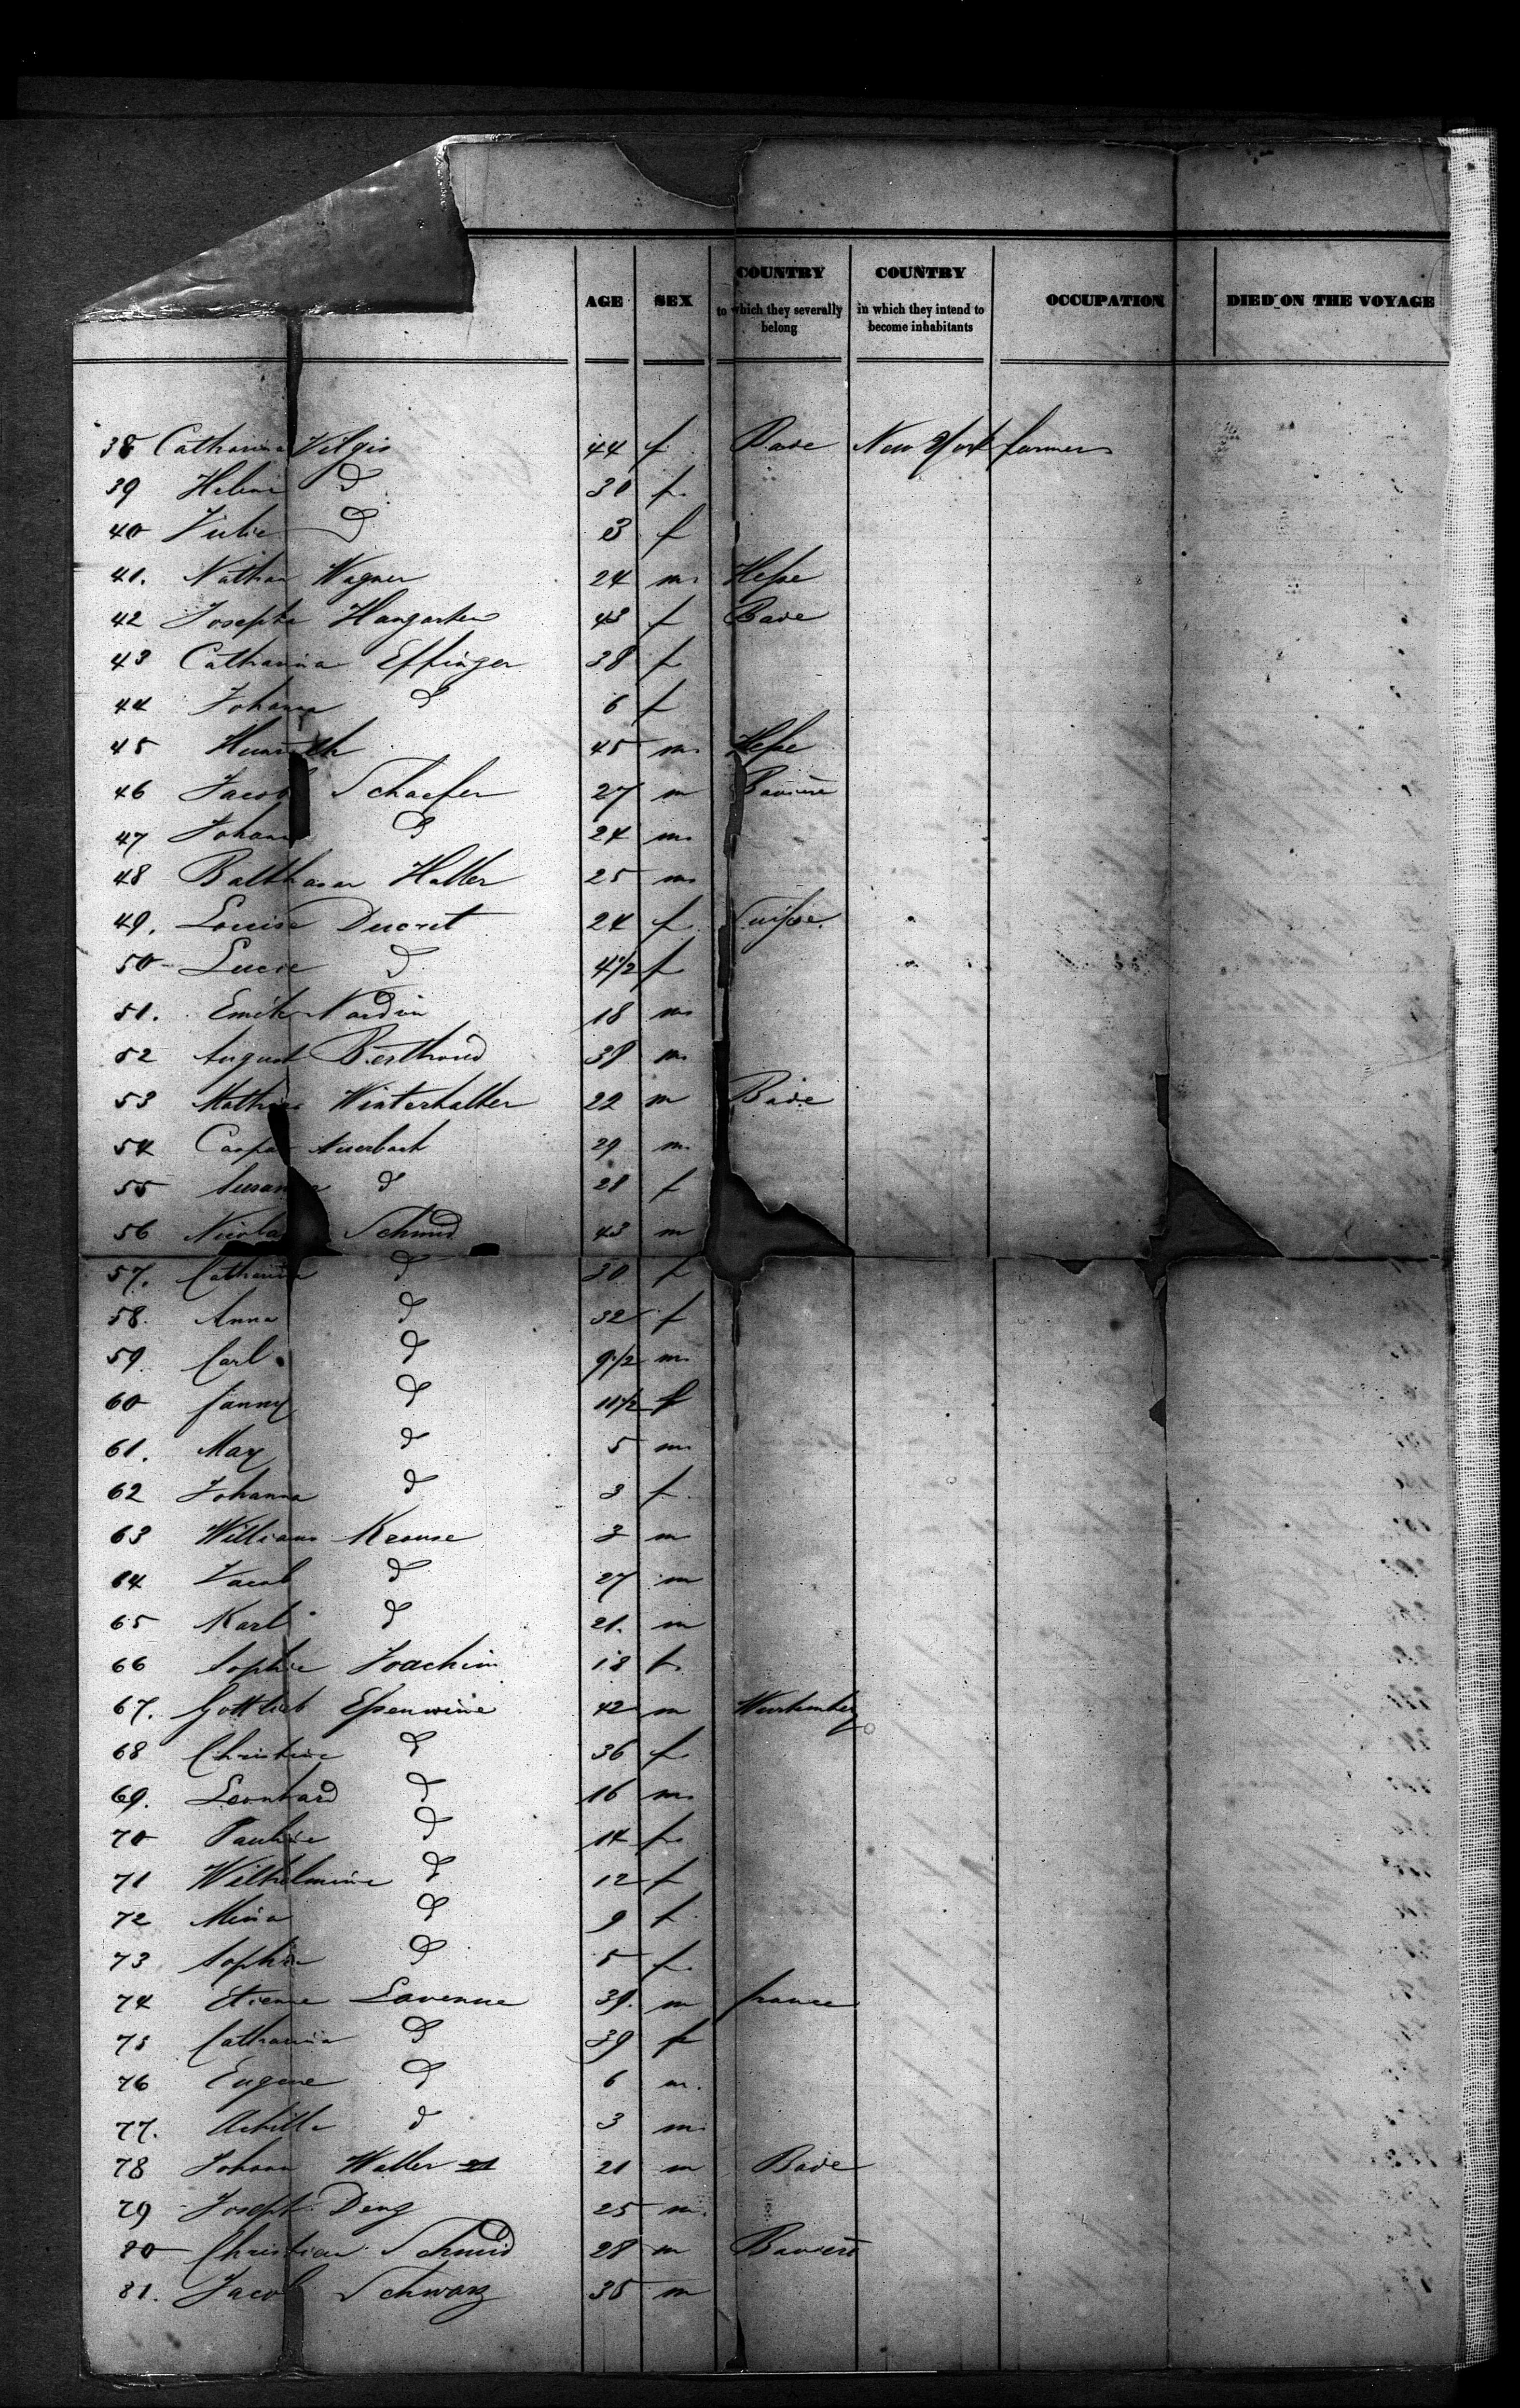 AGE SEX COUNTRY to which they severally belong COUNTRY in which they intend to become inhabitants OCCUPATION DIED ON THE VOYAGE
38 Catharina Vilgis 44 f Bade New York farmers
39 Helene d 30 f
40 Julie d 3 f
41. Nathan Wagner 24 m Hesse
42 Josepha Haugarten 43 f Bade
43 Catharina Effinger 38 f
44 Johana d 6 f
45 Heinrich 45 m Hesse
46 Jacob Schaefer 27 m Baviere
47 Johann d 24 m
48 Balthasar Haller 25 m
49. Louise Ducret 24 f Suisse
50 Lucie d 4 1/2 f
51. Emile Nardin 18 m
52 August Berthoud 38 m
53 Mathias Winterhalter 22 m Bade
54 Caspar Auerbach 29 m
55 Susanna d 28 f
56 Nicolas Schmid 43 m
57. Catharina d 30 f
58. Anna d 32 f
59. Carl d 9 1/2 m
60 fanny d 11 1/2 f
61. Max d 5 m
62 Johanna d 3 f
63 William Krouse 3 m
64 Jacob d 27 m
65 Karl d 21. m
66 Sophie Joachim 18 f
67. Gottlieb Essenweine 42 m Wurtemberg
68 Christine d 36 f
69. Leonhard d 16 m
70 Pauline d 14 f
71 Wilhelmine d 12 f
72 Mina d 9 f
73 Sophie d 5 f
74 Etienne Lavenne 39. m france
75 Catharina d 39 f
76 Eugene d 6 m.
77. Achille d 3 m
78 Johann Waller 21 21 m Bade
79 Joseph Deng 25 m.
80 Christian Schmid 28 m Baviere
81. Jacob Schwarz 35 m